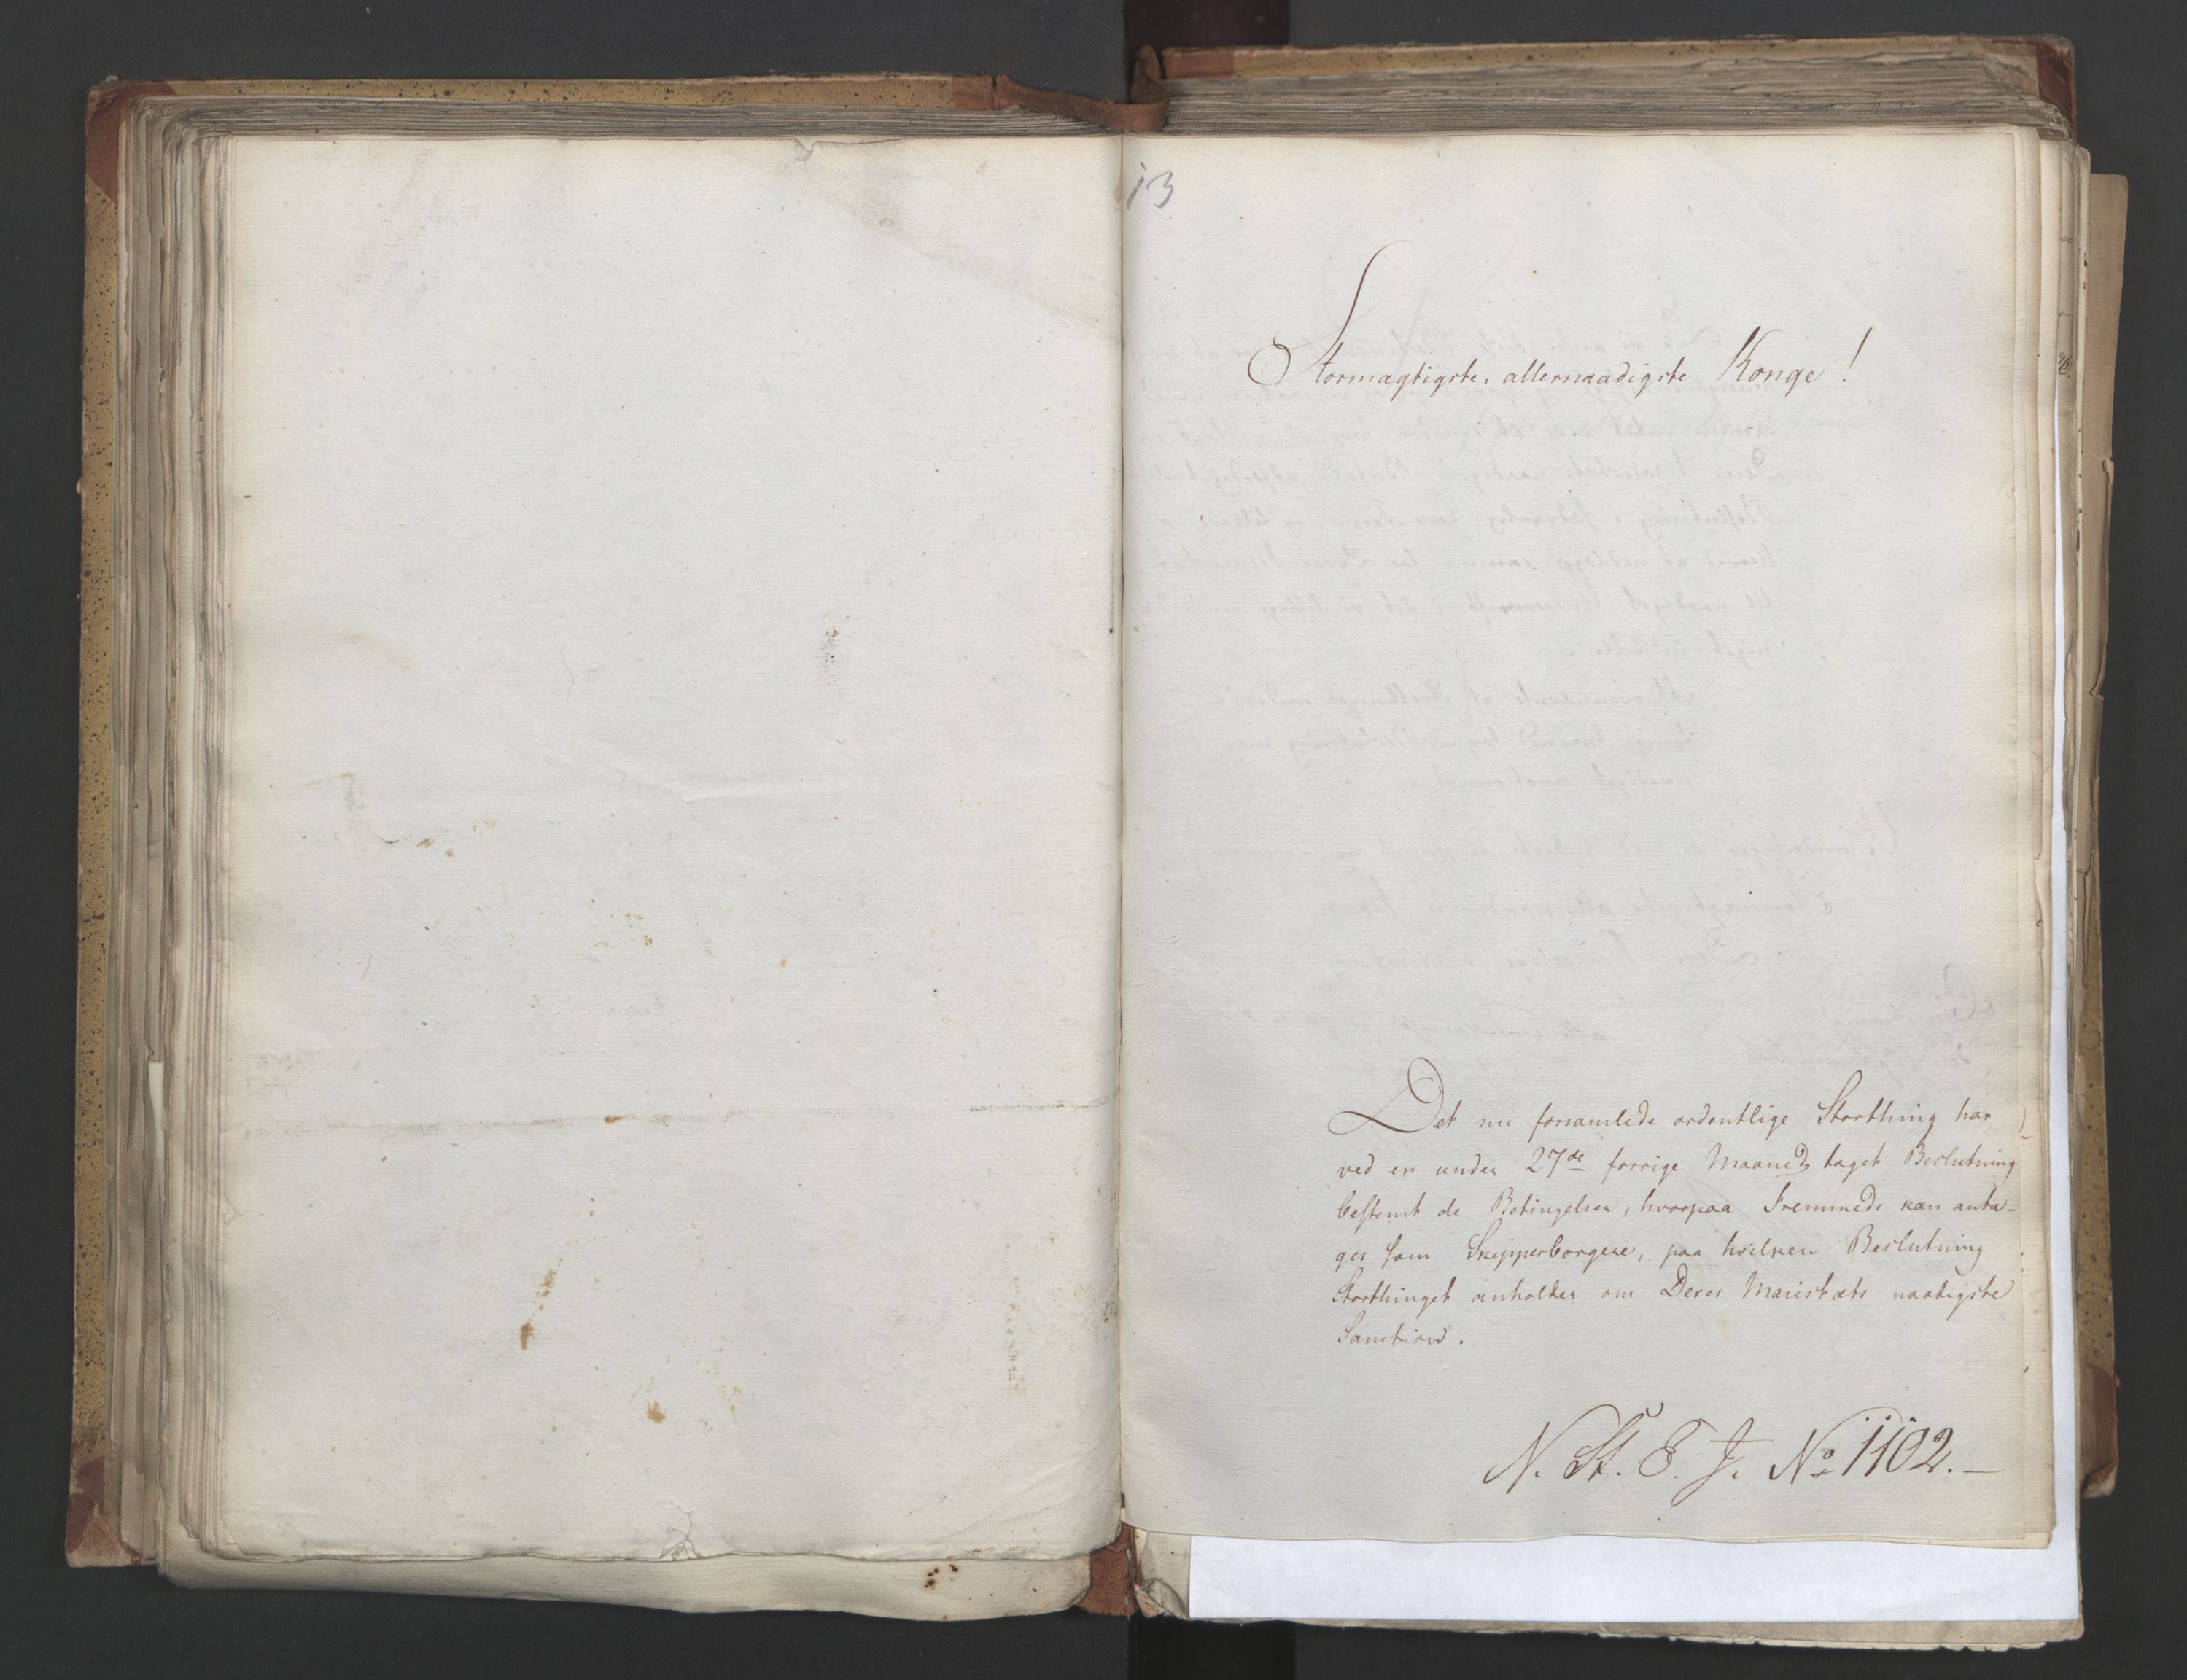 13
Stormægtigste, allernaadigste Konge!
Det nu forsamlede ordentlige Storthing har
ved en under 27de forrige Maaned taget Beslutning
bestemt de Betingelser, hvorpaa Fremmede kan anta-
ges som Skipperborgere, paa hvilken Beslutning
Storthinget anholder om Deres Majestæts naadigste
Sanction.
N. St. E. J. No 1102.—